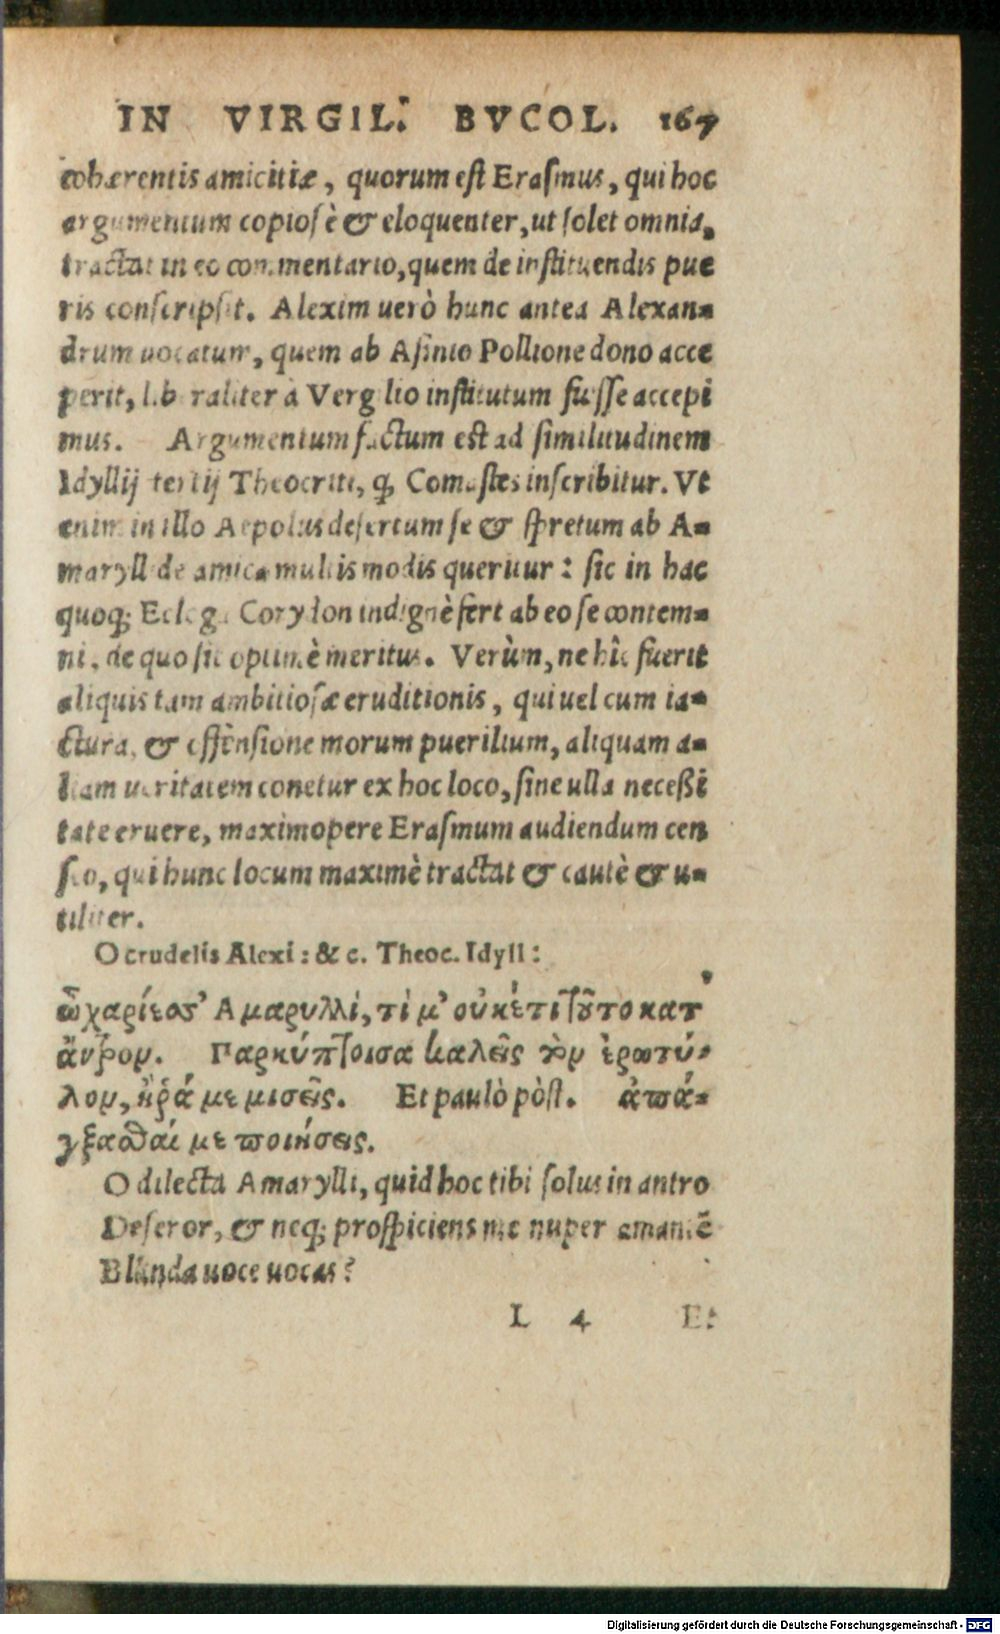 IN VIRGIL. BVCOL. 167
cohærentis amicitiæ, quorum est Erasmus, qui hoc
argumentum copiosè & eloquenter, ut solet omnia,
tractat in eo commentario, quem de instituendis pue
ris conscripsit. Alexim uerò hunc antea Alexan=
drum uocatum, quem ab Asinio Pollione dono acce
perit, liberaliter à Vergilio institutum fuisse accepi
mus. Argumentum factum est ad similitudinem
Idyllij tertij Theocriti, q̃ Comastes inscribitur. Vt
enim in illo Aepolus desertum se & spretum ab A=
maryllide amica multis modis queritur: sic in hac
quoq; Ecloga Corydon indignè fert ab eo se contem=
ni, de quo sit optimè meritus. Verùm, ne hîc fuerit
aliquis tam ambitiosæ eruditionis, qui uel cum ia=
ctura, & offensione morum puerilium, aliquam a=
liam ueritatem conetur ex hoc loco, sine ulla neceßi
tate eruere, maximopere Erasmum audiendum cen
seo, qui hunc locum maximè tractat & cautè & u=
tiliter.
O crudelis Alexi: & c. Theoc. Idyll:
ὦ χαρίεσσ' Αμαρυλλὶ, τὶ μ' οὐκέτι τοῦτο κατ'
ἄντρον. Παρκύπτοισα καλεῖς τὸν ἐρωτύ=
λον, ἦ ῥά με μισεῖς. Et paulò pòst. ἀπά=
γξασθαί με ποιήσεις.
O dilecta Amarylli, quid hoc tibi solus in antro
Deseror, & neq; prospiciens me nuper amantē
Blanda uoce uocas?
L 4 Et
Digitalisierung gefördert durch die Deutsche Forschungsgemeinschaft - DFG